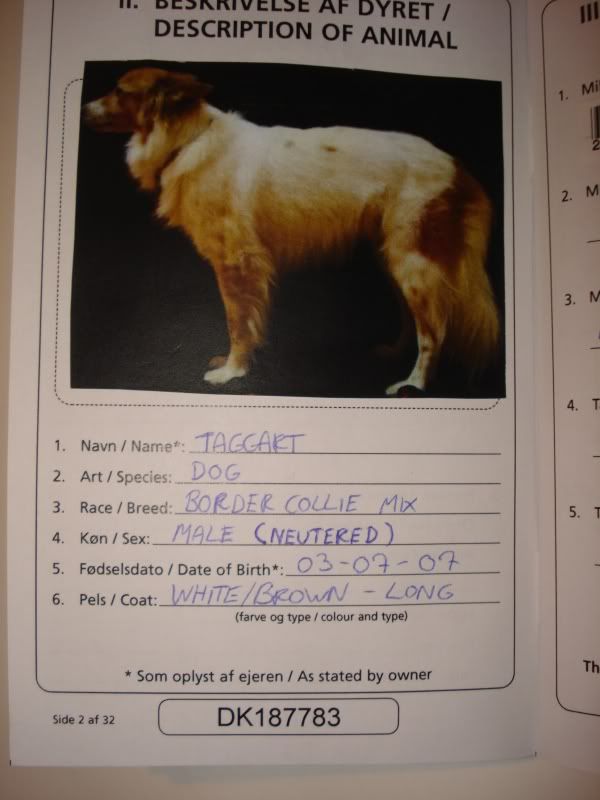 II. BESKRIVELSE AF DYRET /
DESCRIPTION OF ANIMAL
1. Navn / Name*: TAGGART
2. Art / Species: DOG
3. Race / Breed: BORDER COLLIE MIX
4. Køn / Sex: MALE (NEUTERED)
5. Fødselsdato / Date of Birth*: 03-07-07
6. Pels / Coat: WHITE/BROWN - LONG
(farve og type / colour and type)
* Som oplyst af ejeren / As stated by owner
Side 2 af 32
DK187783
1.
2.
3.
4.
5.